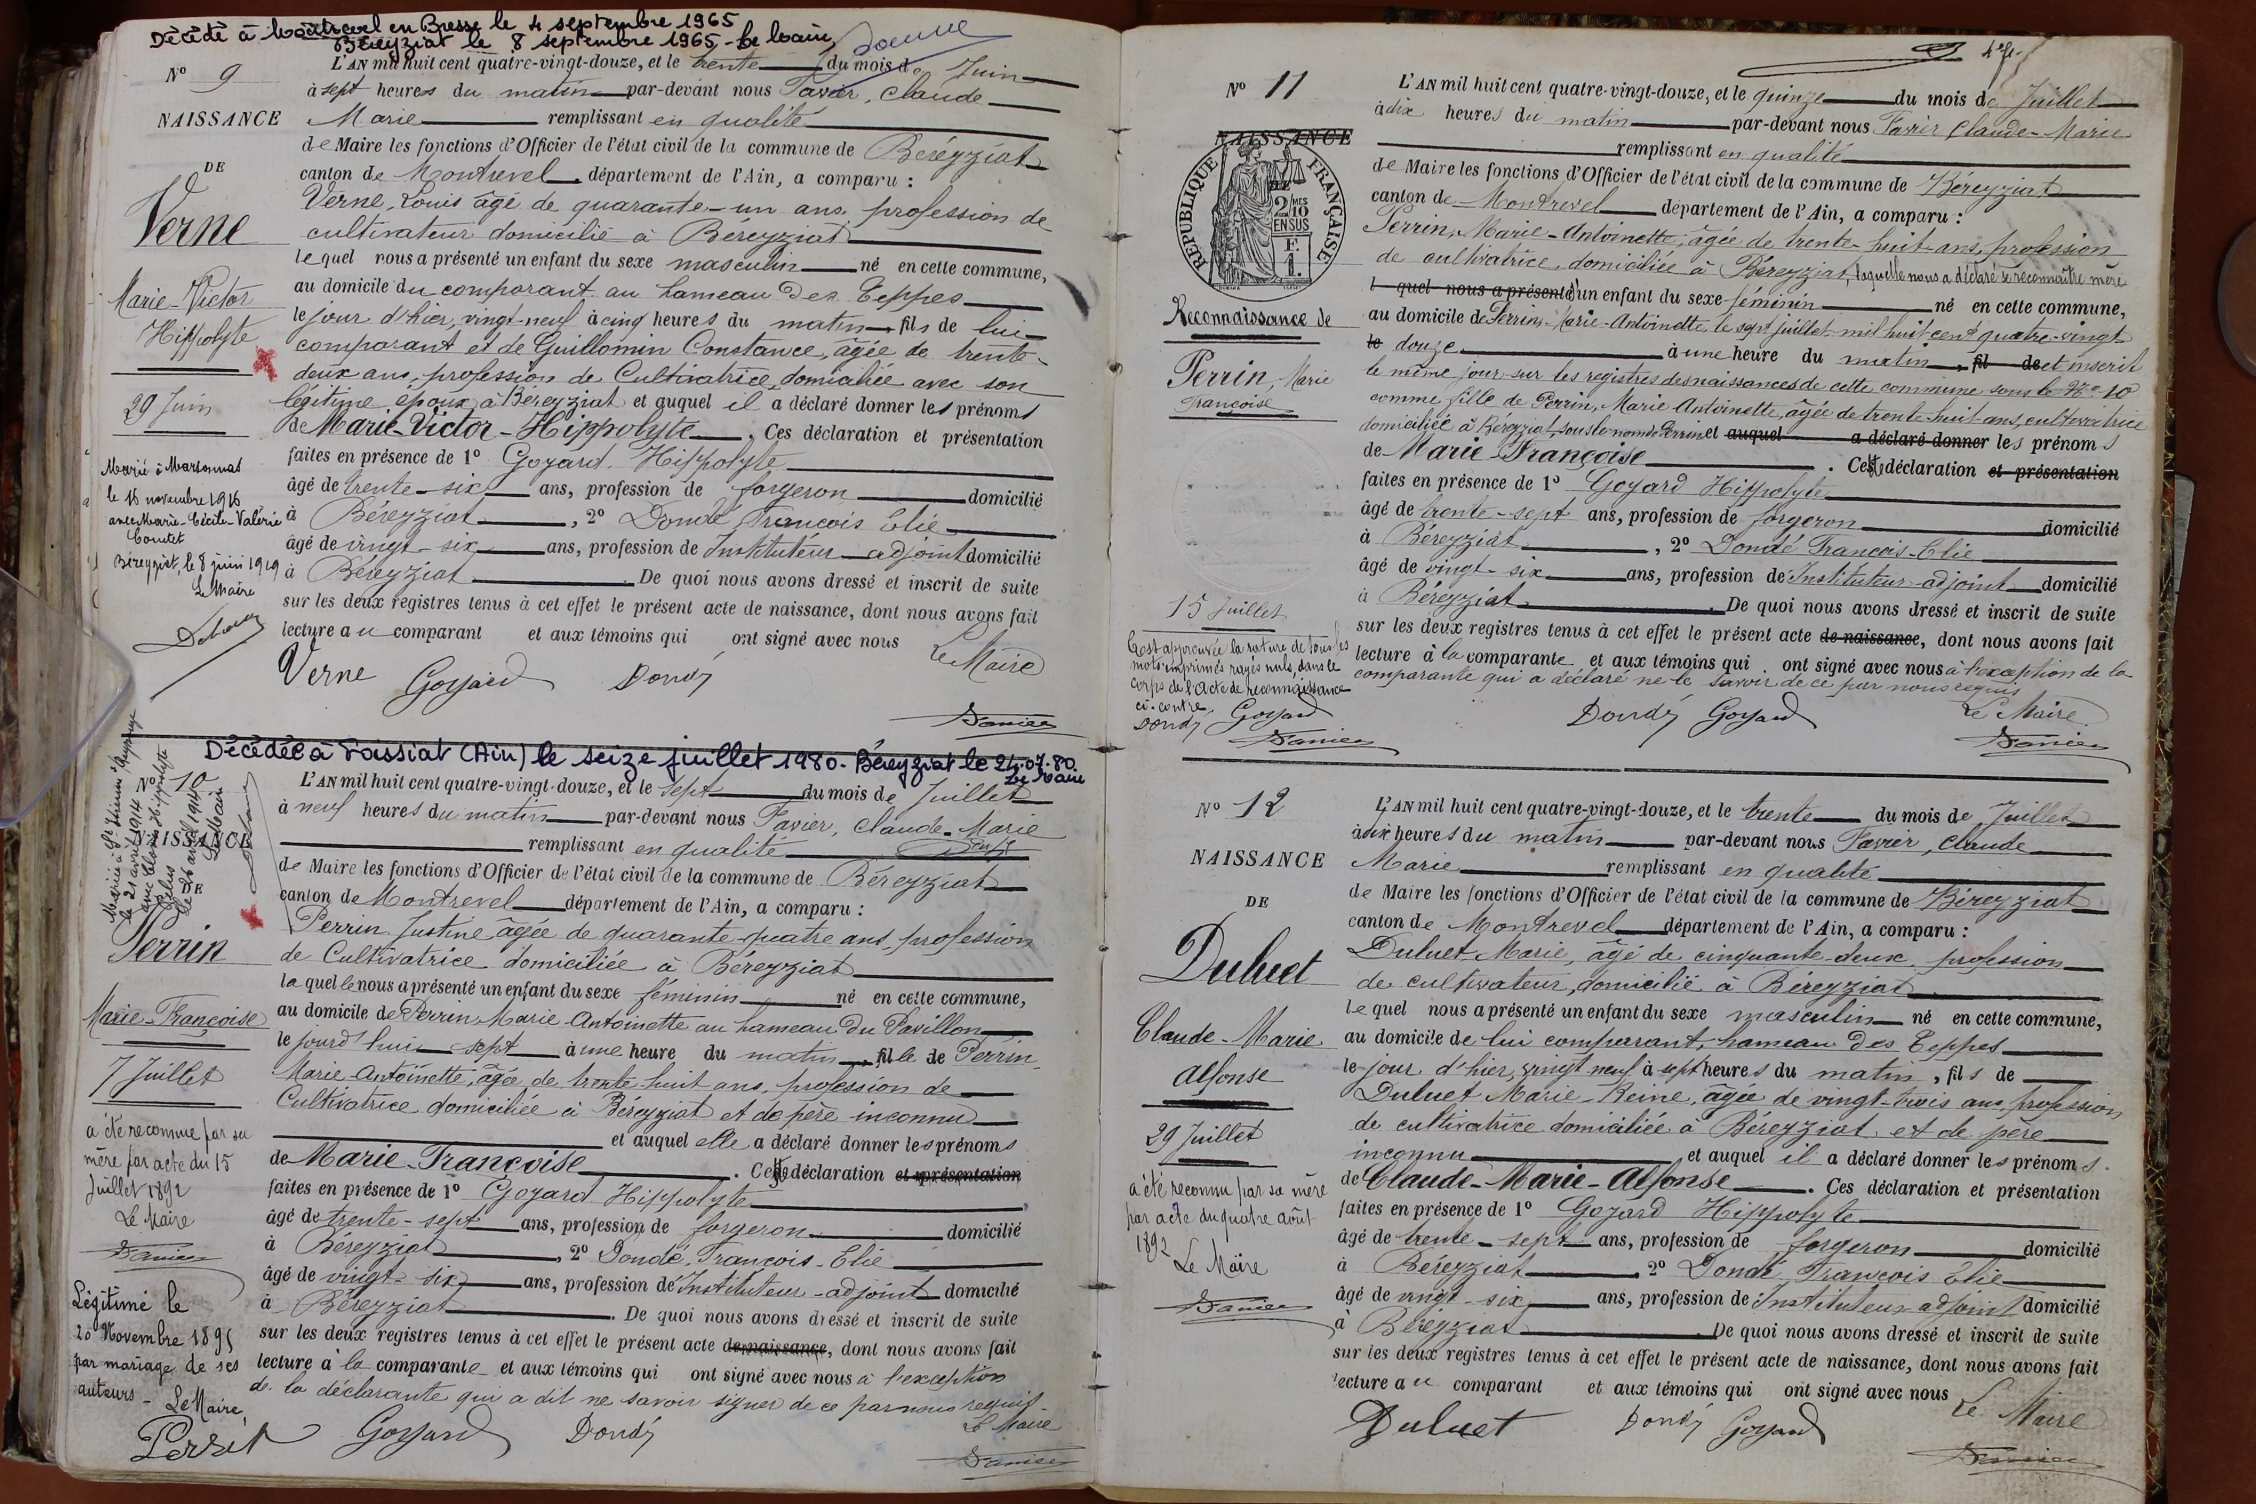 Décédé à Montrevel en Bresse le 4 septembre 1965
Béreyziat le 8 septembre 1965 - Le Maire
N° 9
NAISSANCE
DE
Verne
Marie-Victor
Hippolyte
29 Juin
Marié à Marsonnas
le 16 novembre 1916
avec Marie-Cécile-Valérie
Béreyziat, le 8 juin 1919
Le Maire
L'AN mil huit cent quatre-vingt-douze, et le trente du mois de Juin
à sept heures du matin par-devant nous Favier, Claude
Marie remplissant en qualité
de Maire les fonctions d'Officier de l'état civil de la commune de Béréyziat
canton de Montrevel, département de l'Ain, a comparu :
Verne, Louis âgé de quarante-un ans, profession de
cultivateur domicilié à Bereyziat
lequel nous a présenté un enfant du sexe masculin né en cette commune,
au domicile du comparant au hameau des Teppes
le jour d'hier, vingt-neuf à cinq heures du matin, fils de lui
comparant et de Guillomin Constance, âgée de trente-
deux ans, profession de Cultivatrice, domiciliée avec son
légitime époux, à Béreyziat et auquel il a déclaré donner les prénoms
de Marie-Victor-Hippolyte. Ces déclaration et présentation
faites en présence de 1° Goyard Hippolyte
âgé de trente-six ans, profession de forgeron domicilié
à Béreyziat, 2° Dondé François Elie
âgé de vingt-six ans, profession de Instituteur adjoint domicilié
à Béreyziat. De quoi nous avons dressé et inscrit de suite
sur les deux registres tenus à cet effet le présent acte de naissance, dont nous avons fait
lecture au comparant et aux témoins qui ont signé avec nous
Le Maire
Verne Goyard Dondé
Favier
Décédée à Foissiat (Ain) le seize juillet 1980. Béreyziat le 24.07.80
Le Maire
N° 10
NAISSANCE
DE
Perrin
Marie-Françoise
7 Juillet
Mariée à St
le 21 avril 1914
avec Hippolyte
le 26 avril 1914
Le Maire
a été reconnue par sa
mère par acte du 15
Juillet 1892
Le Maire
Favier
Légitimé le
20 Novembre 1895
par mariage de ses
auteurs - Le Maire,
L'AN mil huit cent quatre-vingt-douze, et le sept du mois de Juillet
à neuf heures du matin par-devant nous Favier, Claude-Marie
remplissant en qualité
de Maire les fonctions d'Officier de l'état civil de la commune de Béreyziat
canton de Montrevel département de l'Ain, a comparu :
Perrin Justine âgée de quarante-quatre ans, profession
de Cultivatrice domiciliée à Béreyziat
laquelle nous a présenté un enfant du sexe féminin né en cette commune,
au domicile de Perrin Marie Antoinette au hameau du Pavillon
le jourd'hui sept à une heure du matin, fille de Perrin
Marie Antoinette, âgée de trente huit ans, profession de
Cultivatrice domiciliée à Béreyziat et de père inconnu
et auquel elle a déclaré donner les prénoms
de Marie-Françoise. Cette déclaration et présentation
faites en présence de 1° Goyard Hippolyte
âgé de trente-sept ans, profession de forgeron domicilié
à Béreyziat, 2° Dondé, François-Elie
âgé de vingt-six ans, profession de Instituteur-adjoint domicilié
à Béreyziat. De quoi nous avons dressé et inscrit de suite
sur les deux registres tenus à cet effet le présent acte de naissance, dont nous avons fait
lecture à la comparante et aux témoins qui ont signé avec nous à l'exception
de la déclarante qui a dit ne savoir signer de ce par nous requis.
Le Maire
Goyard Dondé
Favier
N° 11
NAISSANCE
DE
RÉPUBLIQUE FRANÇAISE
2/10MES
EN SUS
F.
1.
Reconnaissance de
Perrin, Marie
Françoise
15 Juillet
Est approuvée la rature de tous les
mots imprimés rayés nuls, dans le
corps de l'Acte de reconnaissance
ci-contre.
Dondé Goyard
Favier
L'AN mil huit cent quatre-vingt-douze, et le quinze du mois de Juillet
à dix heures du matin par-devant nous Favier Claude-Marie
remplissant en qualité
de Maire les fonctions d'Officier de l'état civil de la commune de Béreyziat
canton de Montrevel département de l'Ain, a comparu :
Perrin, Marie-Antoinette, âgée de trente-huit-ans, profession
de cultivatrice, domiciliée à Béreyziat, laquelle nous a déclaré se reconnaître mère
l quel nous a présenté d'un enfant du sexe féminin né en cette commune,
au domicile de Perrin, Marie-Antoinette, le sept juillet mil huit-cent quatre-vingt
le douze à une heure du matin, fil de et inscrit
le même jour sur les registres des naissances de cette commune sous le N° 10
comme fille de Perrin, Marie Antoinette, âgée de trente-huit ans, cultivatrice
domiciliée à Béreyziat, sous le nom de Perrin et auquel a déclaré donner les prénoms
de Marie Françoise. Cette déclaration et présentation
faites en présence de 1° Goyard Hippolyte
âgé de trente-sept ans, profession de forgeron domicilié
à Béreyziat, 2° Dondé François-Elie
âgé de vingt-six ans, profession de Instituteur-adjoint domicilié
à Béreyziat. De quoi nous avons dressé et inscrit de suite
sur les deux registres tenus à cet effet le présent acte de naissance, dont nous avons fait
lecture à la comparante et aux témoins qui ont signé avec nous à l'exception de la
comparante qui a déclaré ne le savoir de ce par nous requis
Le Maire
Dondé Goyard
Favier
N° 12
NAISSANCE
DE
Duluet
Claude-Marie
Alfonse
29 Juillet
a été reconnu par sa mère
par acte du quatre août
1892
Le Maire
Favier
L'AN mil huit cent quatre-vingt-douze, et le trente du mois de Juillet
à dix heures du matin par-devant nous Favier, Claude
Marie remplissant en qualité
de Maire les fonctions d'Officier de l'état civil de la commune de Béreyziat
canton de Montrevel département de l'Ain, a comparu :
Duluet Marie, âgé de cinquante-deux, profession
de cultivateur, domicilié à Béreyziat
lequel nous a présenté un enfant du sexe masculin né en cette commune,
au domicile de lui comparant, hameau des Teppes
le jour d'hier, vingt neuf à sept heures du matin, fils de
Duluet Marie-Reine, âgée de vingt-trois ans, profession
de cultivatrice domiciliée à Béreyziat et de père
inconnu et auquel il a déclaré donner les prénoms
de Claude-Marie-Alfonse. Ces déclaration et présentation
faites en présence de 1° Goyard Hippolyte
âgé de trente-sept ans, profession de forgeron domicilié
à Béreyziat, 2° Dondé, François Elie
âgé de vingt-six ans, profession de Instituteur adjoint domicilié
à Béreyziat. De quoi nous avons dressé et inscrit de suite
sur les deux registres tenus à cet effet le présent acte de naissance, dont nous avons fait
lecture au comparant et aux témoins qui ont signé avec nous
Le Maire
Duluet Dondé Goyard
Favier